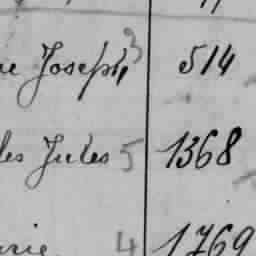 Joseph 3 514
les Jules 5 1368
4 1769